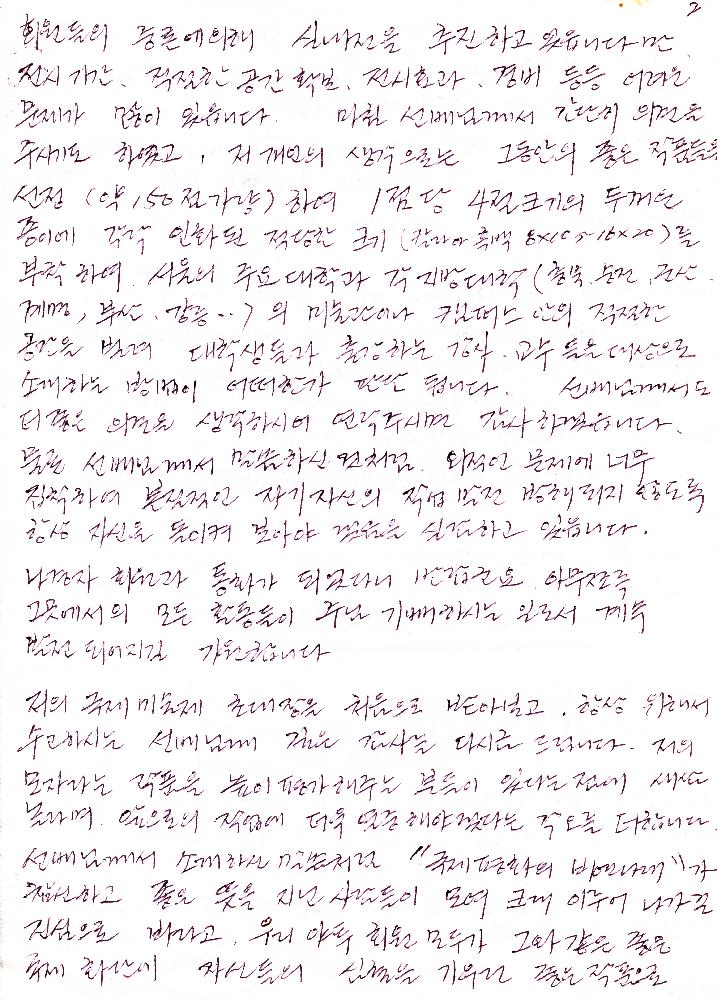 2
회원들의 중론에의해 실내전을 추진하고 있읍니다만
전시기간, 적절한 공간확보, 전시효과, 경비 등등 어려운
문제가 많이 있읍니다. 마침 선배님께서 간단히 의견을
주시기도 하였고, 저 개인의 생각으로는 그동안의 좋은 작품들을
선정 (약 150점 가량) 하여 1점당 4절크기의 두꺼운
종이에 각각 인화된 적당한 크기 (칼라나 흑백 8x10~16x20)를
부착하여, 서울의 주요대학과 각 지방대학 (충북, 대전, 군산,
계명, 부산, 강릉..) 의 미술관이나 캠퍼스 안의 적절한
공간을 빌려 대학생들과 출강하는 강사, 교수 등을 대상으로
소개하는 방법이 어떠한가 판단 됩니다. 선배님께서도
더좋은 의견을 생각하시어 연락주시면 감사하겠읍니다.
물론 선배님께서 말씀하신 것처럼, 외적인 문제에 너무
집착하여 본질적인 자기자신의 작업 발전 방해되지 않도록
항상 자신을 돌이켜 보아야 겠음을 실감하고 있읍니다.
나경자 회원과 통화가 되었다니 반갑군요 아무쪼록
그곳에서의 모든 활동들이 주님 기뻐하시는 일로서 계속
발전 되어지길 기원합니다
저의 국제미술제 초대장을 처음으로 받아보고, 항상 위해서
수고하시는 선배님께 깊은 감사를 다시금 드립니다. 저의
모자라는 작품을 높이 평가해주는 분들이 있다는 점에 새삼
놀라며, 앞으로의 작업에 더욱 열중해야겠다는 각오를 더합니다.
선배님께서 소개하신 말씀처럼 "국제평화의 비엔나레"가
참신하고 좋은 뜻을 지닌 사람들이 모여 크게 이루어 나가길
진심으로 바라고, 우리 야투 회원 모두가 그와 같은 좋은
국제 화단에 자신들의 심혈을 기우린 좋은작품으로